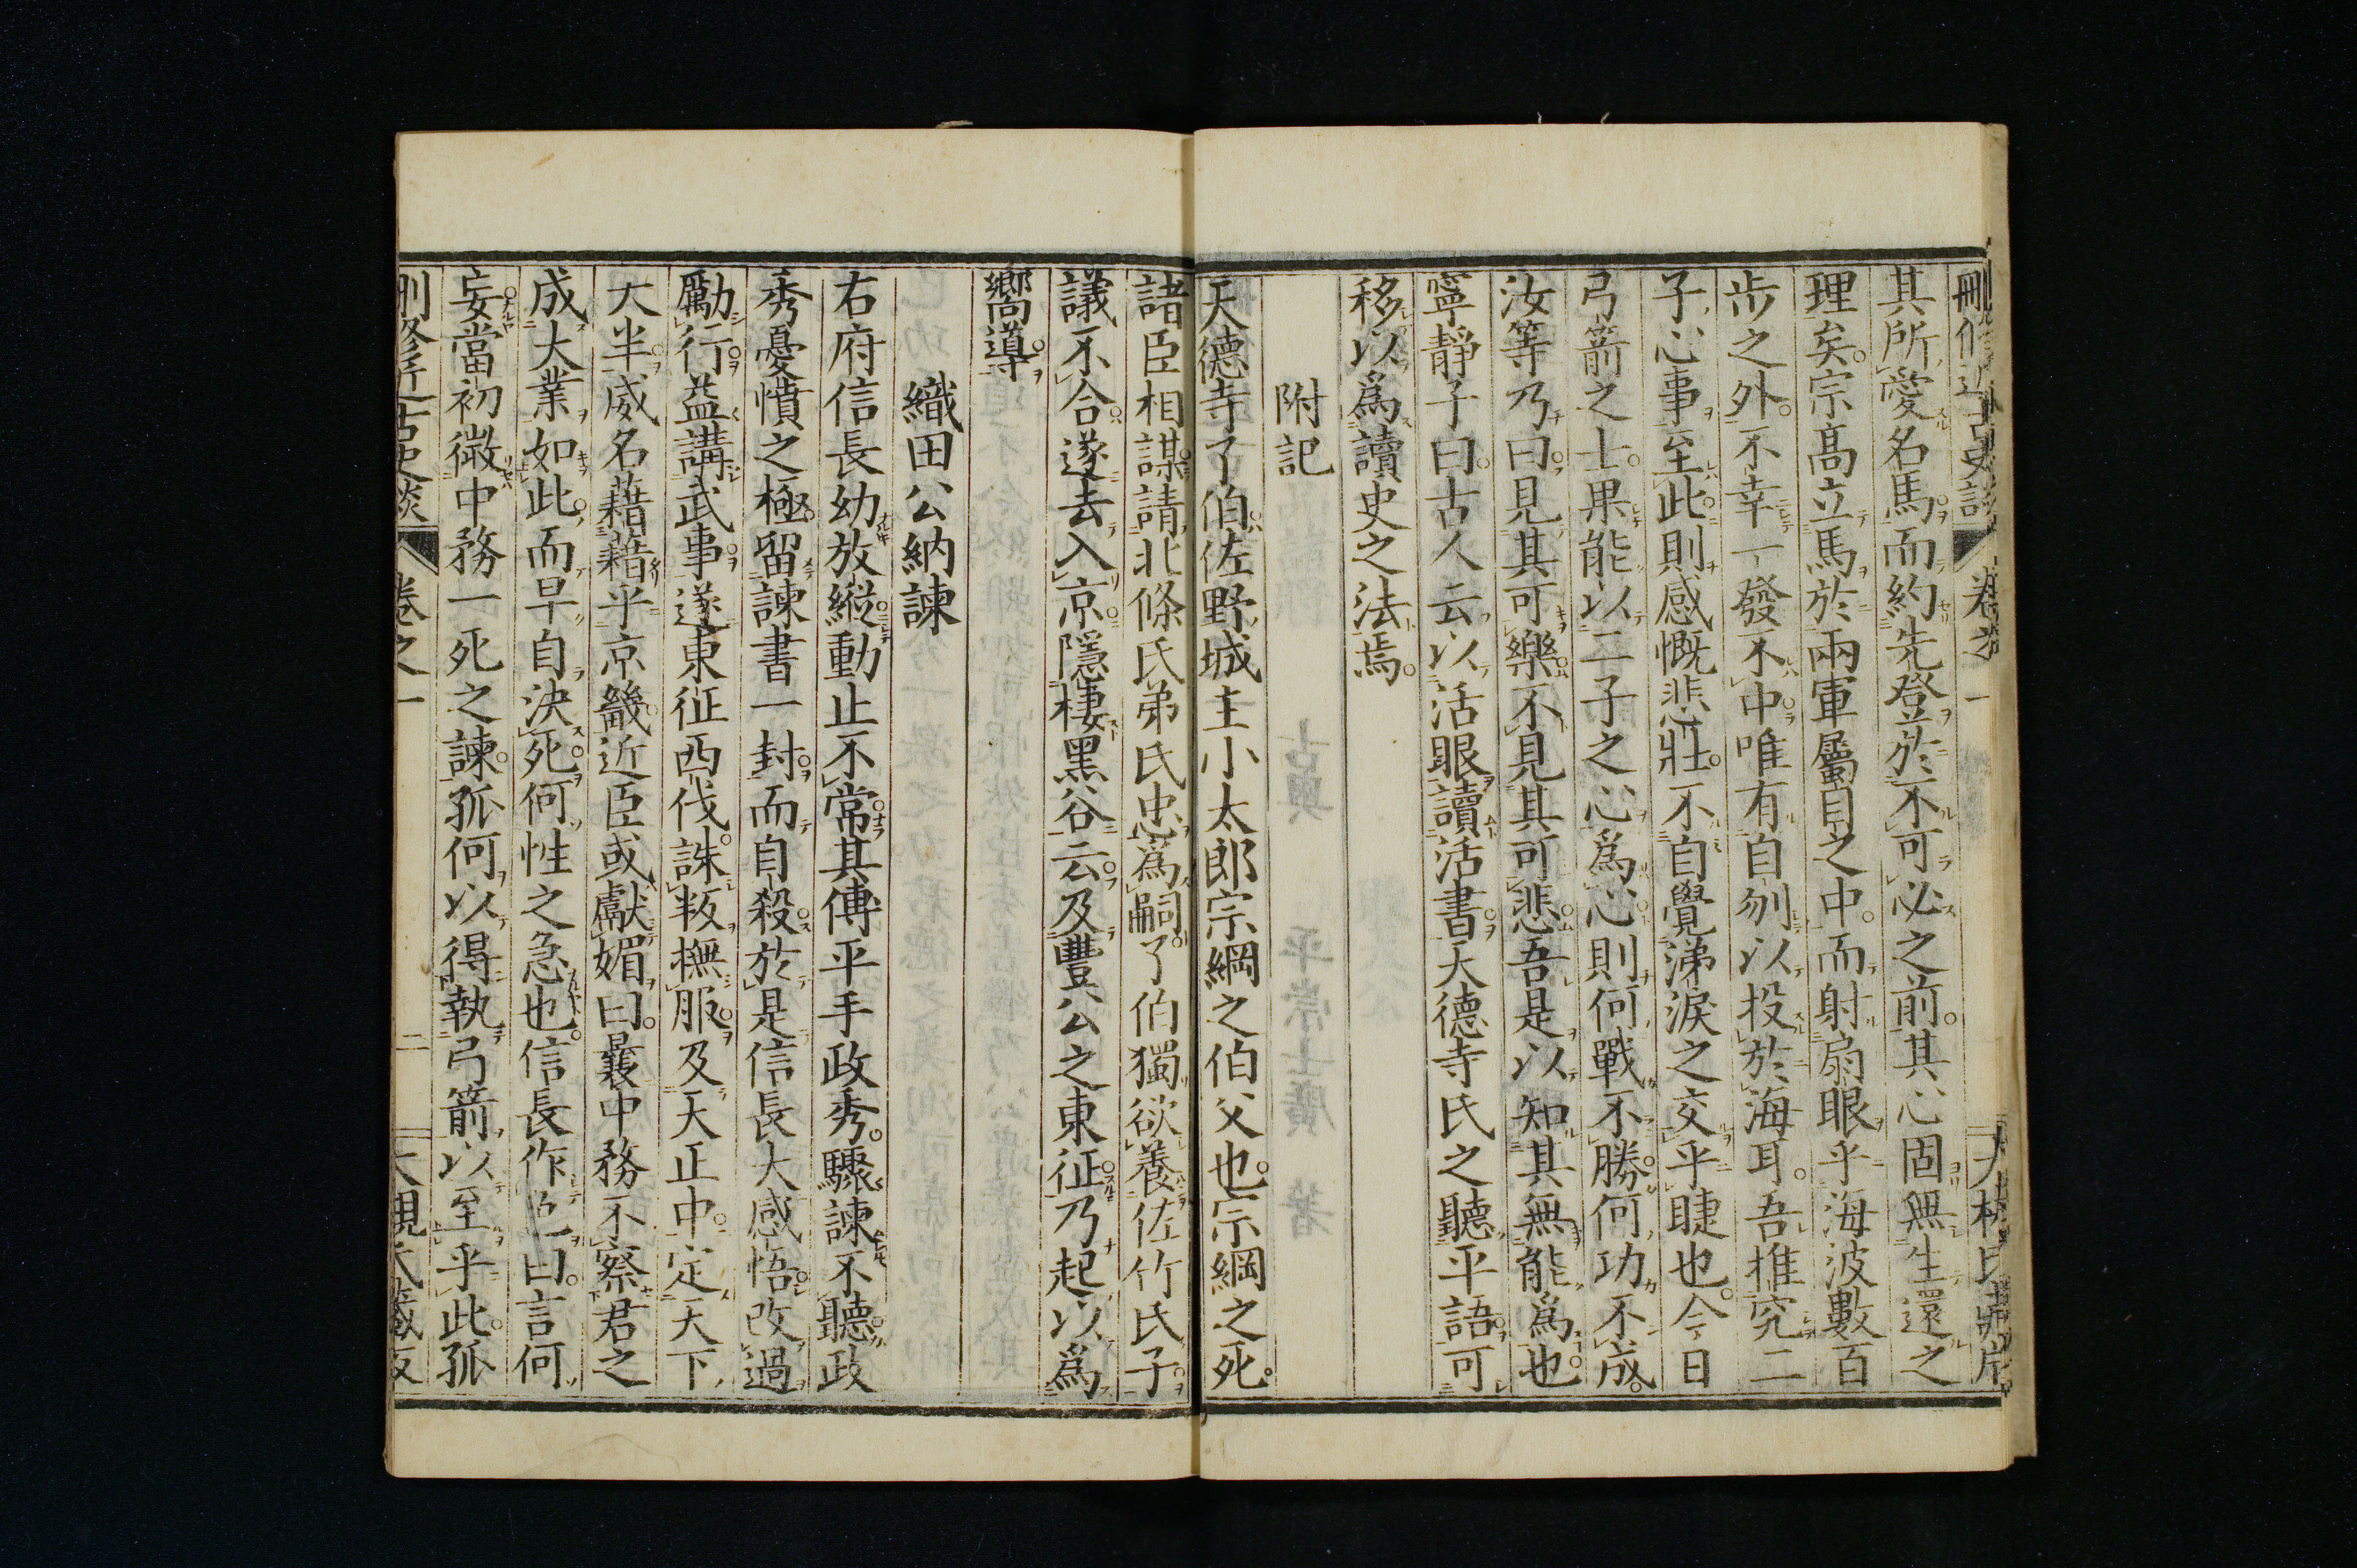 其所愛名馬而約先登於不可必之前其心固無生還之
理矣宗高立馬於兩軍屬目之中而射扇眼乎海波數百
步之外不幸一發不中唯有自刎以投於海耳吾推究二
子心事至此則感慨悲壯不自覺涕淚之交乎睫也今日
弓箭之士果能以二子之心爲心則何戰不勝何功不成
汝等乃曰見其可樂不見其可悲吾是以知其無能爲也
寧靜子曰古人云以活眼讀活書天德寺氏之聽平語可
移以爲讀史之法焉
附記
天德寺了伯佐野城主小太郎宗綱之伯父也宗綱之死
諸臣相謀請北條氏弟氏忠爲嗣了伯獨欲養佐竹氏子
議不合遂去入京隱棲黑谷云及豐公之東征乃起以爲
嚮導
織田公納諫
右府信長幼放縱動止不常其傅平手政秀驟諫不聽政
秀憂憤之極留諫書一封而自殺於是信長大感悟改過
勵行益講武事遂東征西伐誅叛撫服及天正中定天下
大半威名藉藉乎京畿近臣或獻媚曰曩中務不察君之
成大業如此而早自決死何性之急也信長作色曰言何
妄當初微中務一死之諫孤何以得執弓箭以至乎此孤
刪修近古史談 卷之一 二